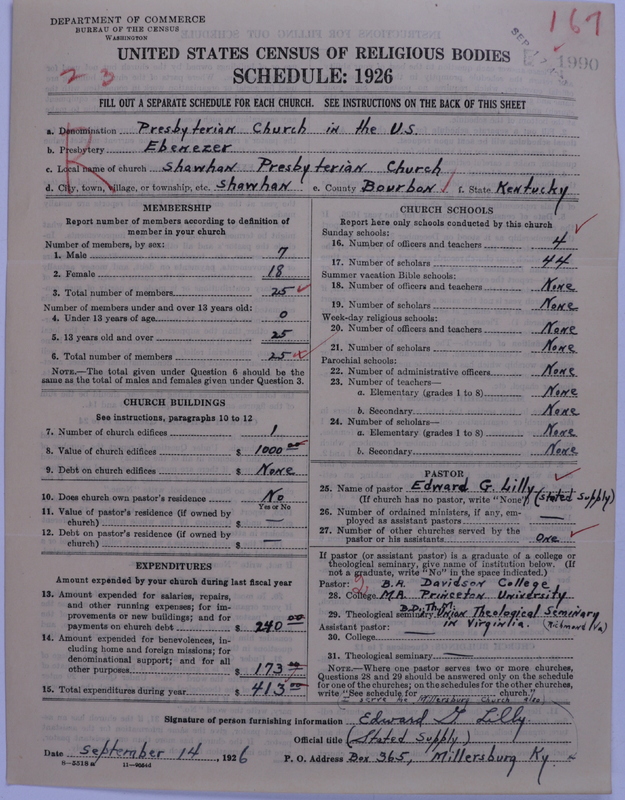 DEPARTMENT OF COMMERCE
BUREAU OF THE CENSUS
WASHINGTON
167
1990
UNITED STATES CENSUS OF RELIGIOUS BODIES
23
SCHEDULE: 1926
FILL OUT A SEPARATE SCHEDULE FOR EACH CHURCH. SEE INSTRUCTIONS ON THE BACK OF THIS SHEET
R
a. Denomination Presbyterian Church in the U.S.
b. Presbytery Ebenezer
c. Local name of church Shawhan Presbyterian Church
d. City, town, village, or township, etc. Shawhan e. County Bourbon f. State Kentucky
MEMBERSHIP
Report number of members according to definition of
member in your church
Number of members, by sex:
1. Male 7
2. Female 18
3. Total number of members 25
Number of members under and over 13 years old:
4. Under 13 years of age 0
5. 13 years old and over 25
6. Total number of members 25
NOTE.—The total given under Question 6 should be
same as the total of males and females given under Question 3.
CHURCH BUILDINGS
See instructions, paragraphs 10 to 12
7. Number of church edifices 1
8. Value of church edifices $ 1000 00
9. Debt on church edifices $ None
10. Does church own pastor's residence No
Yes or No
11. Value of pastor's residence (if owned by
church) $ —
12. Debt on pastor's residence (if owned by
church) $ —
EXPENDITURES
Amount expended by your church during last fiscal year
13. Amount expended for salaries, repairs,
and other running expenses; for im-
provements or new buildings; and for
payments on church debt $ 240 00
14. Amount expended for benevolences, in-
cluding home and foreign missions; for
denominational support; and for all
other purposes $ 173
15. Total expenditures during year $ 413
CHURCH SCHOOLS
Report here only schools conducted by this church
Sunday schools:
16. Number of officers and teachers 4
17. Number of scholars 44
Summer vacation Bible schools:
18. Number of officers and teachers None
19. Number of scholars None
Week-day religious schools:
20. Number of officers and teachers None
21. Number of scholars None
Parochial schools:
22. Number of administrative officers None
23. Number of teachers—
a. Elementary (grades 1 to 8) None
b. Secondary None
24. Number of scholars—
a. Elementary (grades 1 to 8) None
b. Secondary None
PASTOR
25. Name of pastor Edward G. Lilly
(If church has no pastor, write "None") (Stated Supply)
26. Number of ordained ministers, if any, em-
ployed as assistant pastors —
27. Number of other churches served by the
pastor or his assistants One
If pastor (or assistant pastor) is a graduate of a college or
theological seminary, give name of institution below. (If
not a graduate, write "No" in the space indicated.)
Pastor: 2 B.A. Davidson College
28. College M.A. Princeton University
B.D. Th.M.
29. Theological seminary Union Theological Seminary
Assistant pastor: in Virginia. (Richmond Va)
30. College —
31. Theological seminary —
NOTE.—Where one pastor serves two or more churches,
Questions 28 and 29 should be answered only on the schedule
for one of the churches; on the schedules for the other churches,
write "See schedule for church."
I serve the Millersburg Church also)
Signature of person furnishing information Edward G Lilly
Official title (Stated Supply)
Date September 14, 1926 P. O. Address Box 365, Millersburg Ky.
8—5518a